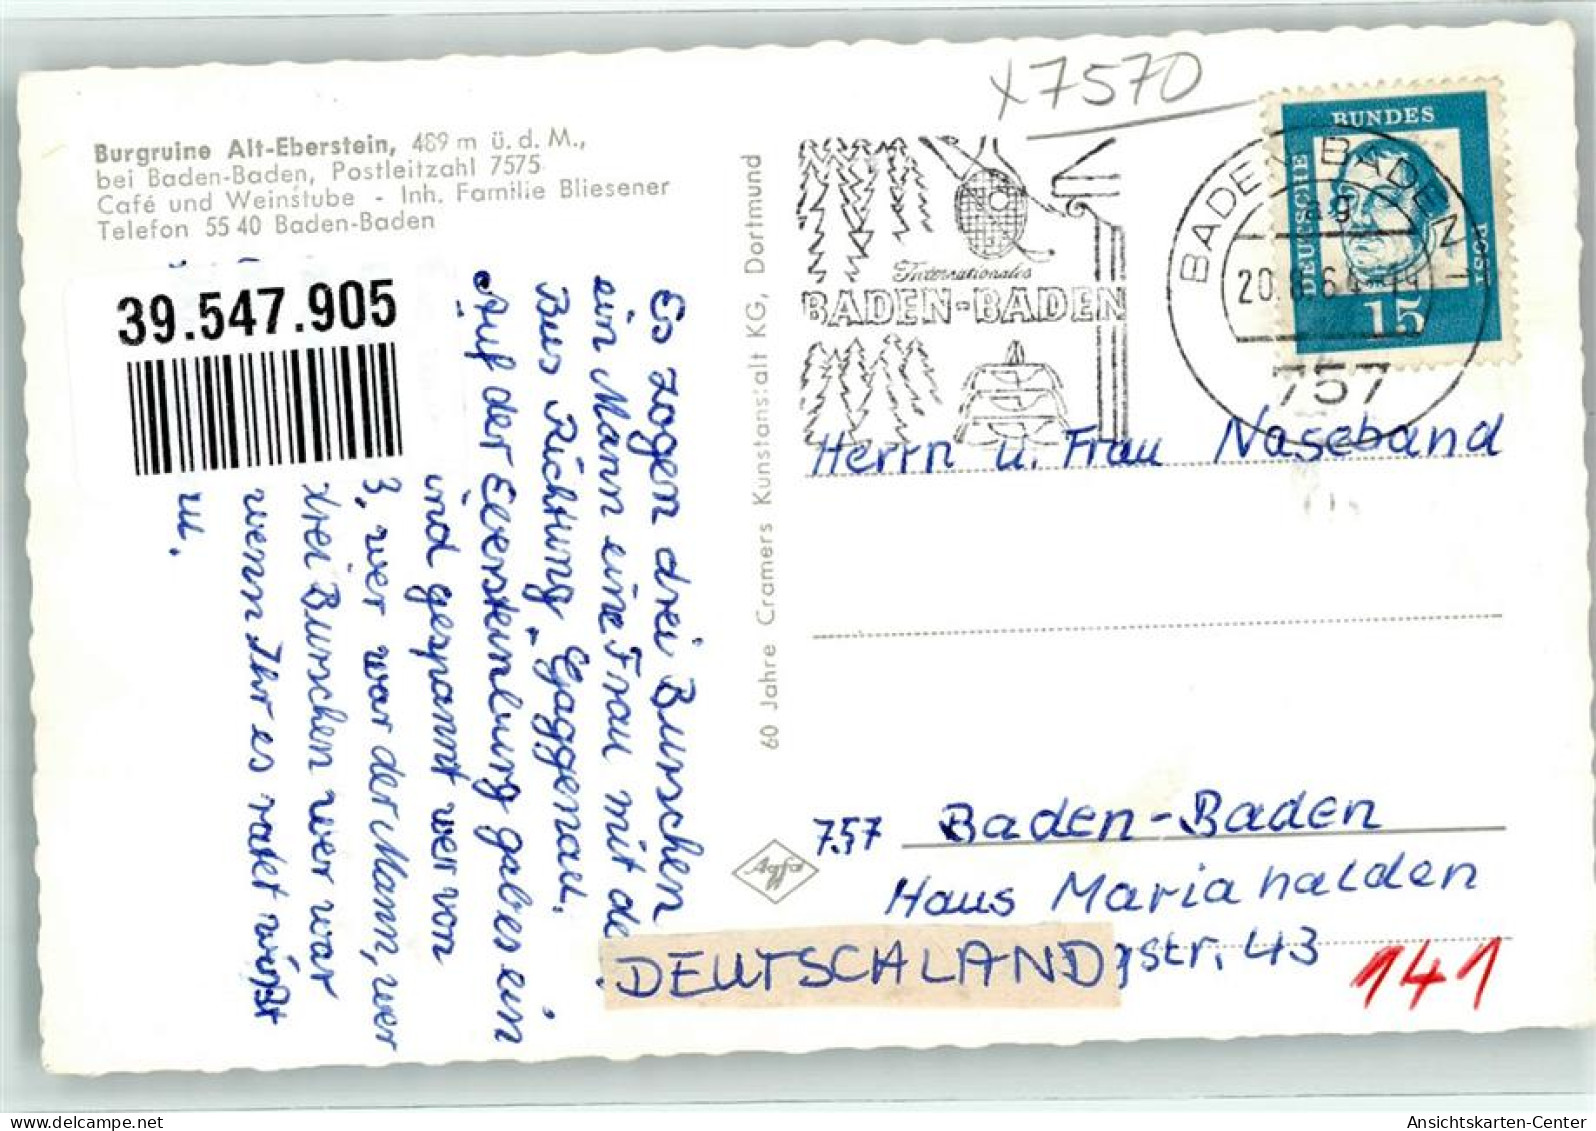 x7570
Burgruine Alt-Eberstein, 489 m ü. d. M.,
bei Baden-Baden, Postleitzahl 7575
Café und Weinstube - Inh. Familie Bliesener
Telefon 55 40 Baden-Baden
39.547.905
Es zogen drei Burschen
ein Mann eine Frau mit de
Bus Richtung Gaggenau.
Auf der Ebersteinburg gab es ein
und gespannt wer von
3, wer war der Mann, wer
drei Burschen wer war
wenn Ihr es ratet wißt
zu.
60 Jahre Cramers Kunstanstalt KG, Dortmund
Internationales
BADEN-BADEN
BADEN-BADEN
ag
757
DEUTSCHE
BUNDES
POST
15
Herrn u. Frau Naseband
Agfa
757 Baden-Baden
Haus Mariahalden
DEUTSCHLAND str. 43
141
Ansichtskarten-Center